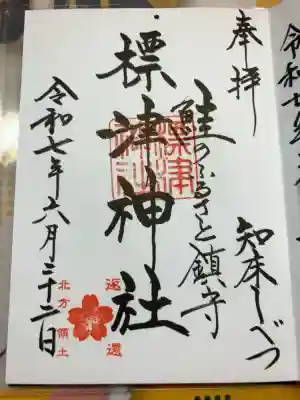 奉拝
知床しべつ
鮭のふるさと鎮守
標津神社
返還
北方領土
令和七年六月二十二日